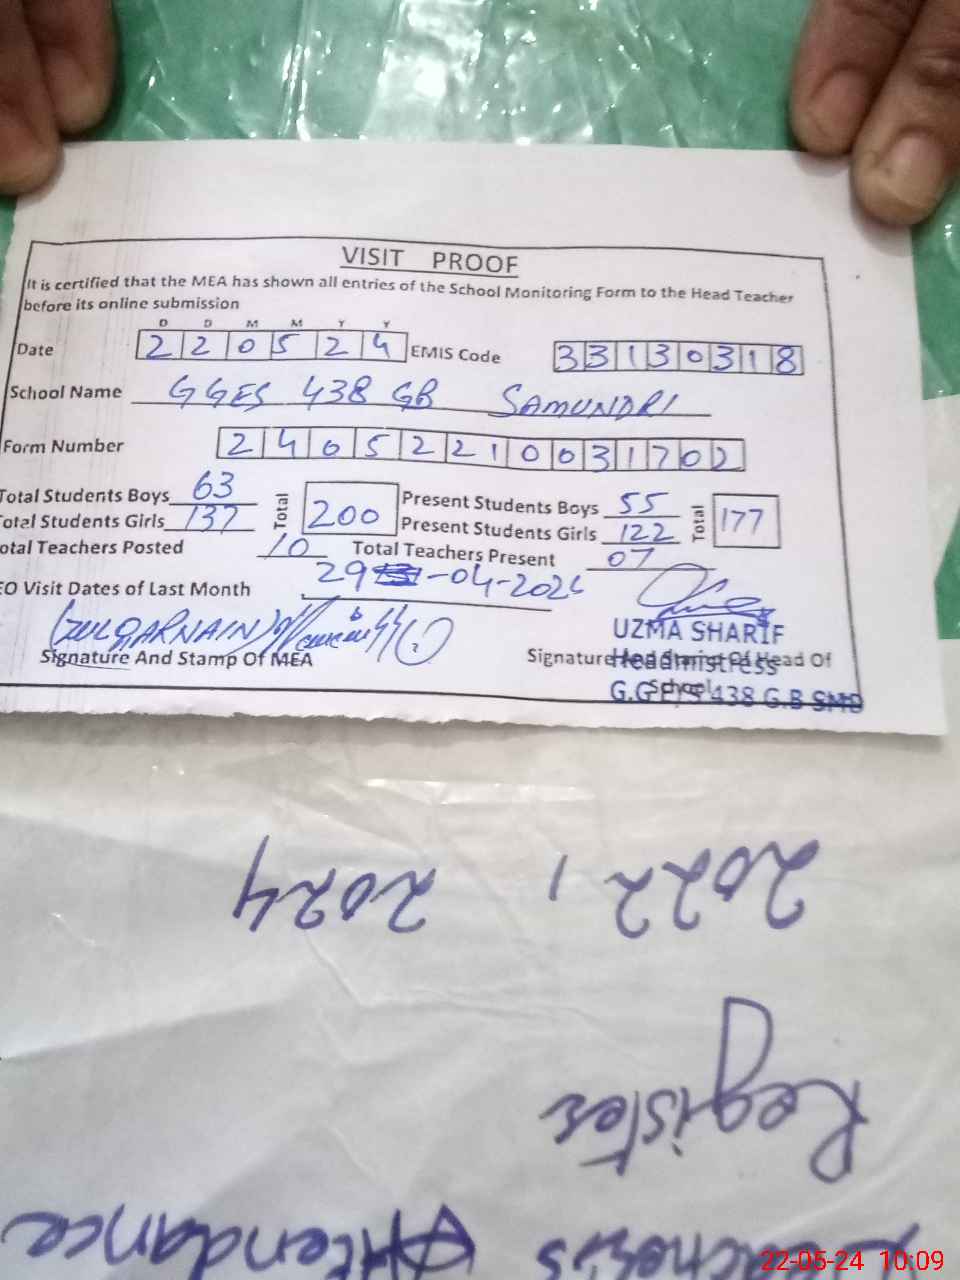 VISIT PROOF
It is certified that the MEA has shown all entries of the School Monitoring Form to the Head Teacher
before its online submission
D D M M Y Y
Date 2 2 0 5 2 4 EMIS Code 3 3 1 3 0 3 1 8
School Name GGES 438 GB SAMUNDRI
Form Number 2 4 0 5 2 2 1 0 0 3 1 7 0 2
Total Students Boys 63 Total 200 Present Students Boys 55 Total 177
otal Students Girls 137 Present Students Girls 122
otal Teachers Posted 10 Total Teachers Present 07
EO Visit Dates of Last Month 29 -04-2024
(ZULQARNAIN)
UZMA SHARIF
Signature And Stamp Of MEA Signature And Stamp Of Head Of
Headmistress
School
G.G.E/S 438 G.B SMD
2022, 2024
Register
Teachers Attendance
22-05-24 10:09